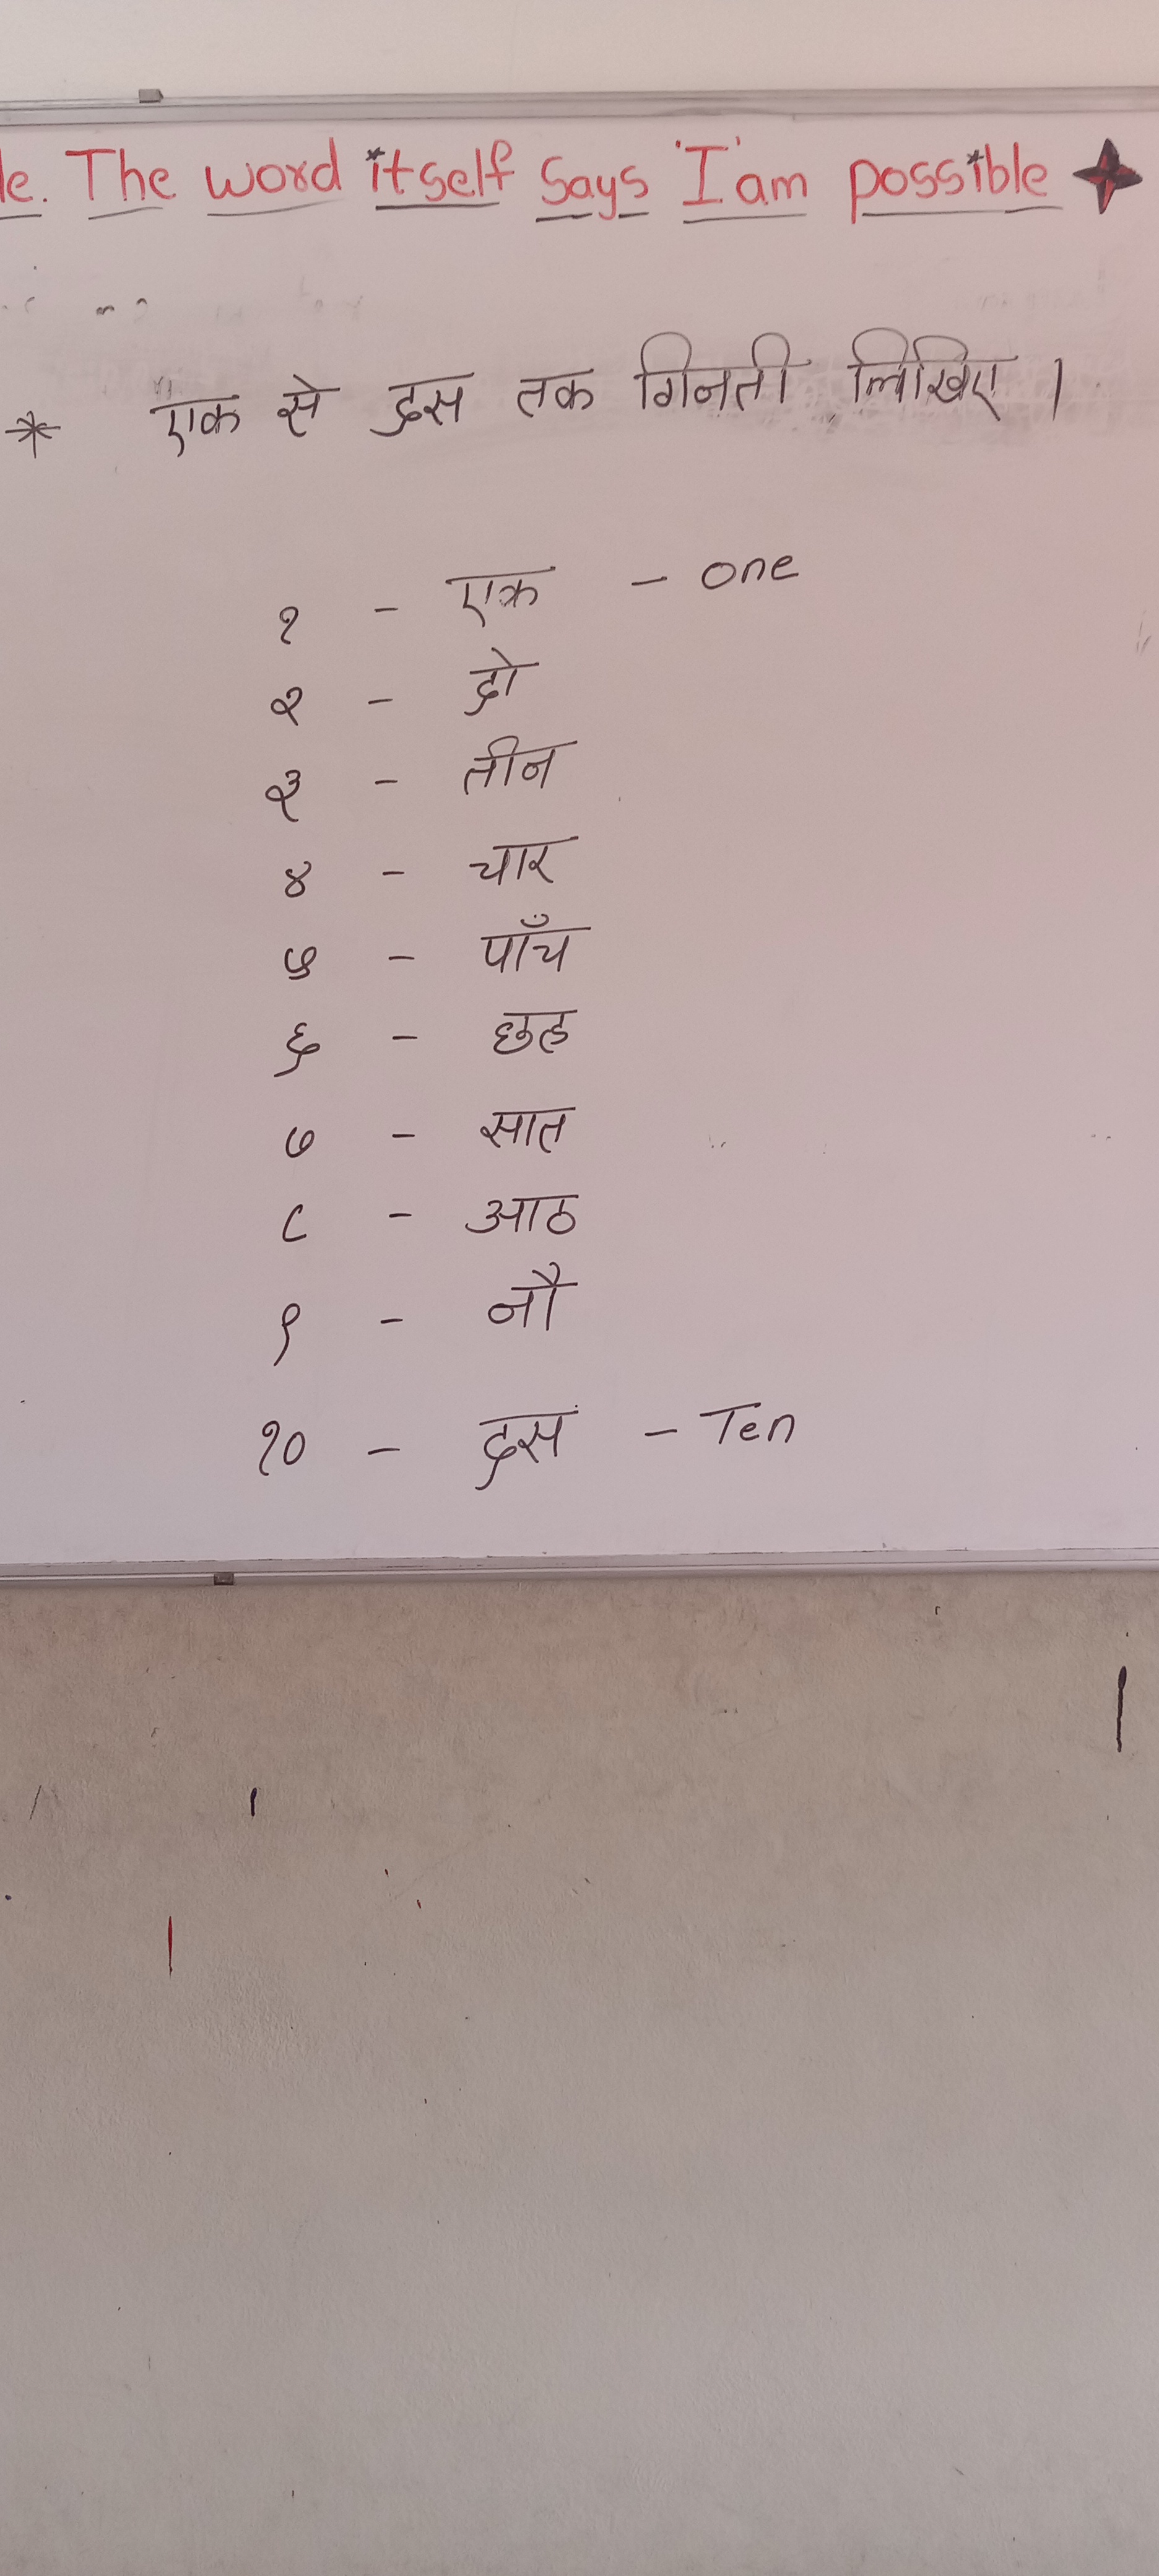 le. The word itself says 'I'am possible
* एक से दस तक गिनती लिखिए ।
१ - एक - one
२ - दो
३ - तीन
४ - चार
५ - पाँच
६ - छह
७ - सात
८ - आठ
९ - नौ
१० - दस - Ten